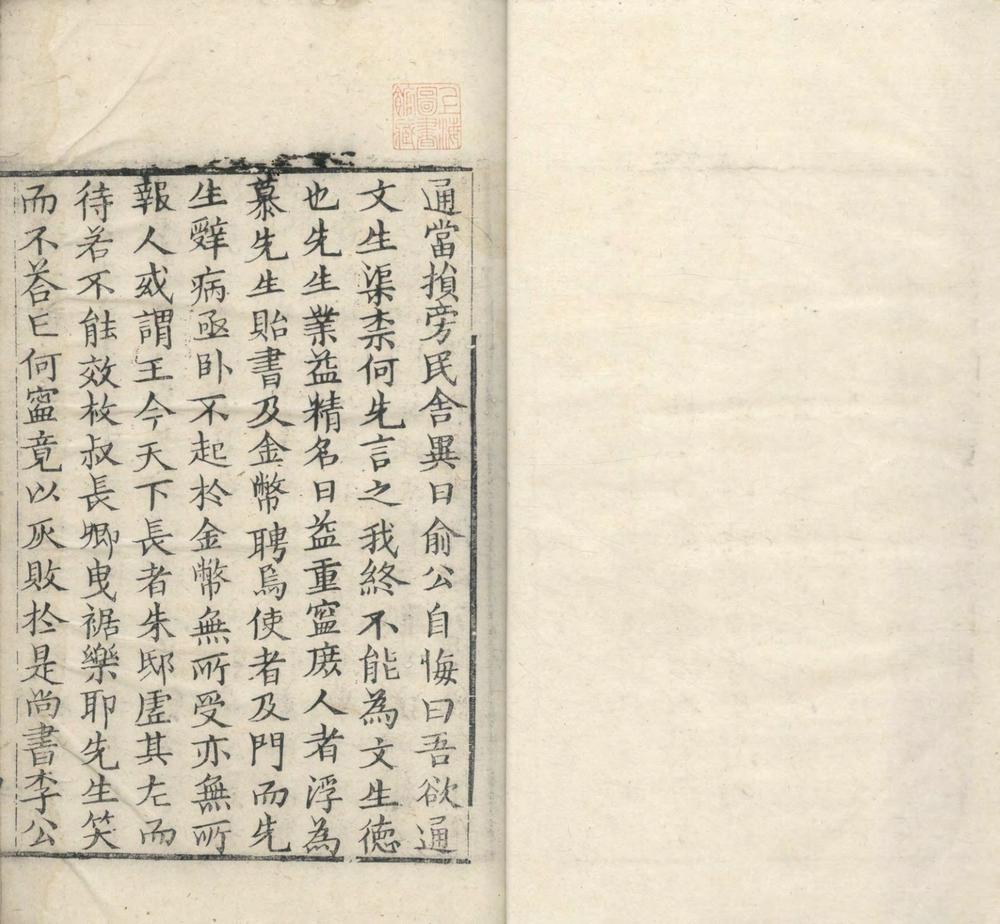 通當損旁民舍異日俞公自悔曰吾欲通
文生渠柰何先言之我終不能為文生徳
也先生業益精名日益重寍庶人者浮為
慕先生貽書及金幣聘焉使者及門而先
生辭病亟卧不起於金幣無所受亦無所
報人或謂王今天下長者朱邸虛其左而
待若不能效枚叔長卿曳裾樂耶先生笑
而不荅亡何寍竟以反敗於是尚書李公
上海圖書館藏